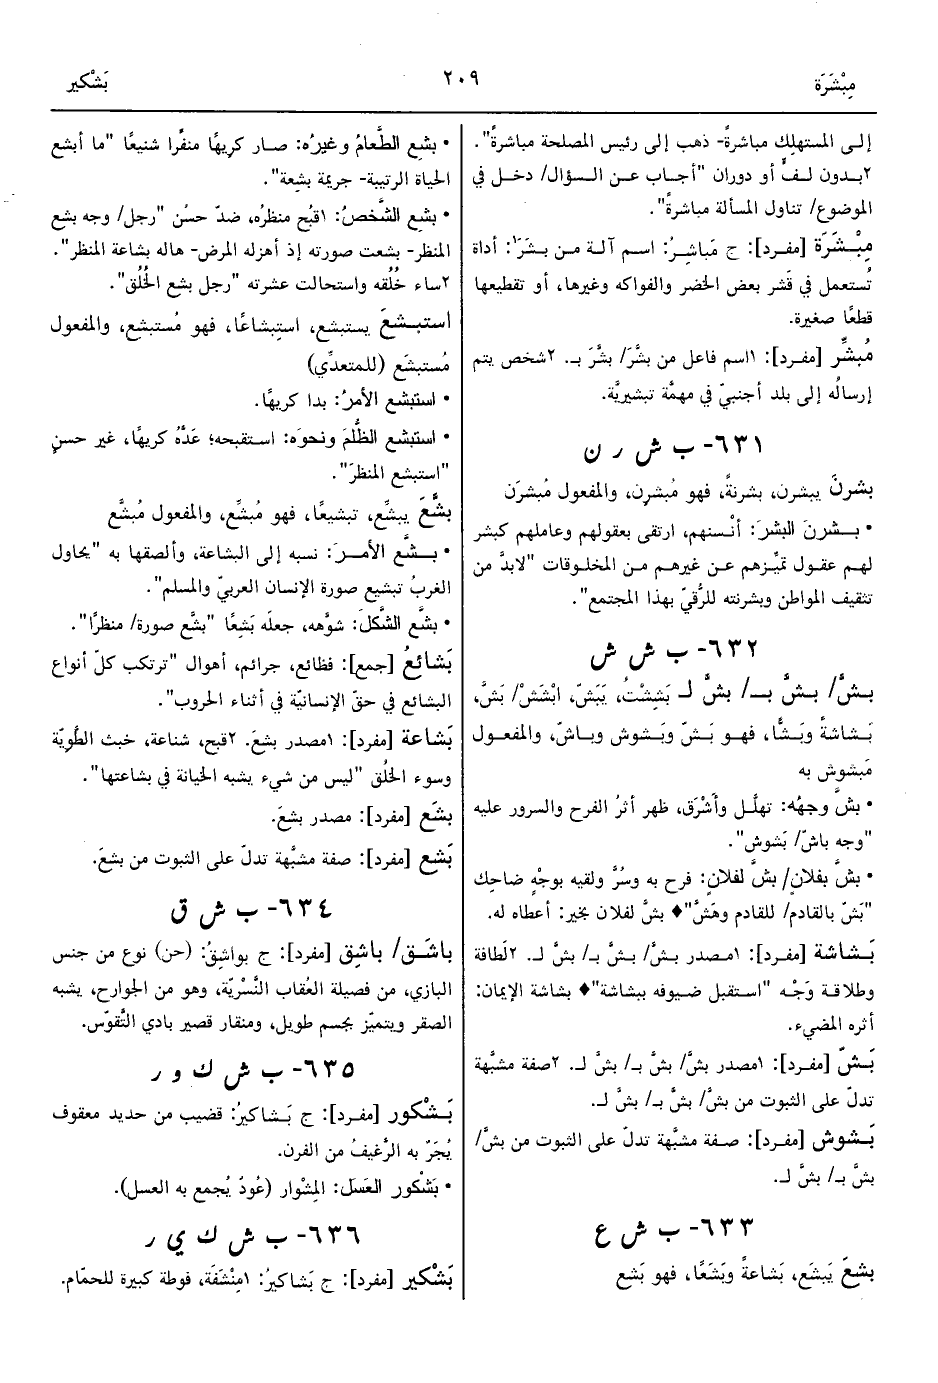 مِبْشَرَة
٢٠٩
بَشْكير
إلـى المستهلِك مباشرةً- ذهب إلى رئيس المصلحة مباشرةً".
٢بـدون لـفٍّ أو دوران "أجـاب عـن الـسؤال/ دخـل في
الموضوع/ تناول المسألة مباشرةً".
مِـبْـشَرَة [مفـرد]: ج مَباشِـرُ: اسـم آلـة مـن بـشَرَ١: أداة
تُستعمل في قَشر بعض الخضر والفواكه وغيرها، أو تقطيعها
قطعًا صغيرة.
مُبشِّر [مفرد]: ١اسم فاعل من بشَّرَ/ بشَّرَ بـ. ٢شخص يتم
إرسالُه إلى بلد أجنبيّ في مهمَّة تبشيريَّة.
٦٣١- ب ش ر ن
بشرنَ يبشرن، بشرنةً، فهو مُبشرِن، والمفعول مُبشرَن
• بـشرنَ البشرَ: أنْسنهم، ارتقى بعقولهم وعاملهم كبشر
لهـم عقـول تميِّـزهم عـن غيرهـم مـن المخلـوقات "لابدَّ من
تثقيف المواطن وبشرنته للرُّقيّ بهذا المجتمع".
٦٣٢- ب ش ش
بـشَّ/ بـشَّ بــ/ بشَّ لـ بَشِشْتُ، يَبَشّ، ابْشَشْ/ بَشَّ،
بَـشاشةً وبَـشًّا، فهـو بَـشّ وبَـشوش وبـاشّ، والمفعـول
مَبشوش به
• بشَّ وجهُه: تهلَّـل وأشْرَق، ظهر أثرُ الفرح والسرور عليه
"وجه باشّ/ بَشوش".
• بشَّ بفلانٍ/ بشَّ لفلانٍ: فرح به وسُرَّ ولقيه بوجْهٍ ضاحِك
"بَشّ بالقادم/ للقادم وهَشَّ"♦ بشَّ لفلان بخير: أعطاه له.
بَـشاشة [مفـرد]: ١مـصدر بـشَّ/ بـشَّ بـ/ بشَّ لـ. ٢لَطافة
وطلاقـة وَجْـه "اسـتقبل ضـيوفه ببشاشة"♦ بشاشة الإيمان:
أثره المضيء.
بَـشّ [مفـرد]: ١مصدر بشَّ/ بشَّ بـ/ بشَّ لـ. ٢صفة مشبَّهة
تدلّ على الثبوت من بشَّ/ بشَّ بـ/ بشَّ لـ.
بَـشوش [مفرد]: صـفة مشبَّهة تدلّ على الثبوت من بشَّ/
بشَّ بـ/ بشَّ لـ.
٦٣٣- ب ش ع
بشعَ يَبشَع، بَشاعةً وبَشَعًا، فهو بَشع
• بشِع الطَّعامُ وغيرُه: صـار كريهًا منفِّرا شنيعًا "ما أبشع
الحياة الرتيبة- جريمة بشِعة".
• بشِع الشَّخصُ: ١قبُح منظرُه، ضدّ حسُن "رجل/ وجه بشِع
المنظر- بشعت صورته إذ أهزله المرض- هاله بشاعة المنظر".
٢ساء خُلُقه واستحالت عشرته "رجل بشِع الخُلُق".
استبـشعَ يستبشع، استِبشاعًا، فهو مُستبشِع، والمفعول
مُستبشَع (للمتعدِّي)
• استبشع الأمرُ: بدا كريهًا.
• استبشع الظُّلمَ ونحوَه: استقبحه؛ عَدَّه كريهًا، غير حسنٍ
"استبشع المنظرَ".
بشَّعَ يبشِّع، تبشيعًا، فهو مُبشِّع، والمفعول مُبشَّع
• بـشَّع الأمـرَ: نسبه إلى البشاعة، وألصقها به "يحاول
الغربُ تبشيع صورة الإنسان العربيّ والمسلم".
• بشَّع الشَّكلَ: شوَّهه، جعله بَشِعًا "بشَّع صورة/ منظرًا".
بَشائعُ [جمع]: فظائع، جرائم، أهوال "ترتكب كلّ أنواع
البشائع في حقّ الإنسانيّة في أثناء الحروب".
بَشاعة [مفرد]: ١مصدر بشعَ. ٢قبح، شناعة، خبث الطَّويّة
وسوء الخلُق "ليس من شيء يشبه الخيانة في بشاعتها".
بشَع [مفرد]: مصدر بشعَ.
بَشع [مفرد]: صفة مشبَّهة تدلّ على الثبوت من بشعَ.
٦٣٤- ب ش ق
باشَـق/ باشِق [مفرد]: ج بواشِقُ: (حن) نوع من جنس
البازي، من فصيلة العُقاب النَّسْريّة، وهو من الجوارح، يشبه
الصقر ويتميَّز بجسم طويل، ومنقار قصير بادي التَّقوّس.
٦٣٥- ب ش ك و ر
بَـشْكور [مفرد]: ج بَـشاكيرُ: قضيب من حديد معقوف
يُجَرّ به الرَّغيفُ من الفرن.
• بَشْكور العَسَل: المِشْوار (عُودٌ يُجمع به العسل).
٦٣٦- ب ش ك ي ر
بَشْكير [مفرد]: ج بَشاكيرُ: ١مِنْشَفَة، فوطة كبيرة للحمّام.